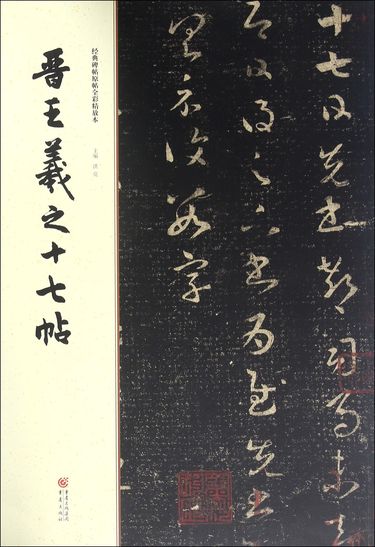 经典碑帖原帖全彩精放本
晋王羲之十七帖
主编 洪亮
十七日先書郗司馬未去
即日得足下書為慰先書
以具示復數字
重庆出版集团
重庆出版社